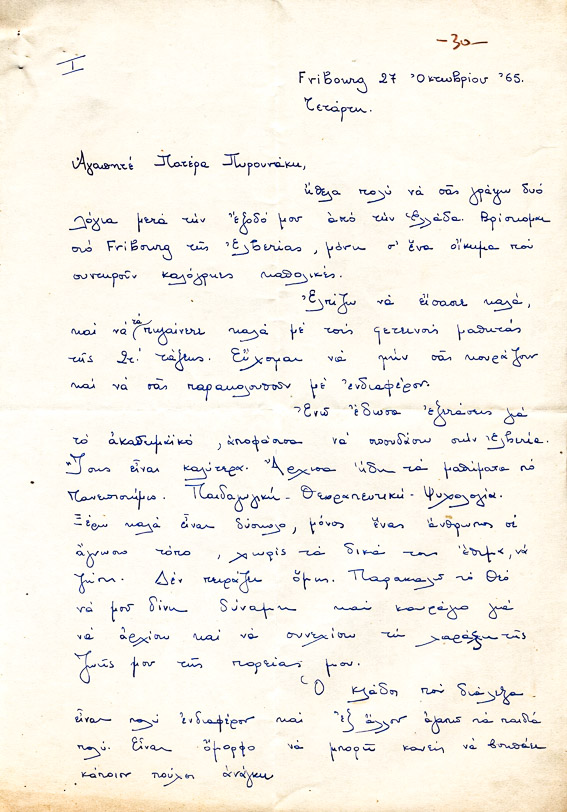 -30-
I
Fribourg 27 Ὀκτωβρίου '65.
Τετάρτη.
Ἀγαπητέ Πατέρα Πυρουνάκη,
ἤθελα πολύ νὰ σᾶς γράψω δυό
λόγια μετά τὴν ἔξοδό μου ἀπό τὴν Ἑλλάδα. Βρίσκομαι
στό Fribourg τῆς Ἑλβετίας, μόνη σ' ἕνα οἴκημα πού
συντηροῦν καλόγριες καθολικές.
Ἐλπίζω νὰ εἴσαστε καλά,
καὶ νὰ τὰ πηγαίνετε καλά μέ τούς φετεινούς μαθητάς
τῆς Στ' τάξεως. Εὔχομαι νὰ μήν σᾶς κουράζουν
καὶ νὰ σᾶς παρακολουθοῦν μέ ἐνδιαφέρον.
Ἐνῶ ἔδωσα ἐξετάσεις γιά
τό ἀκαδημαϊκό, ἀποφάσισα νὰ σπουδάσω στήν Ἑλβετία.
Ἴσως εἶναι καλύτερα. Ἄρχισα ἤδη τὰ μαθήματα στό
Πανεπιστήμιο. Παιδαγωγική - Θεραπευτική - Ψυχολογία.
Ξέρω καλά εἶναι δύσκολο, μόνος ἕνας ἄνθρωπος σέ
ἄγνωστο τόπο, χωρίς τὰ δικά του ἔθιμα, νὰ
ζήση. Δέν πειράζει ὅμως. Παρακαλῶ τό Θεό
νὰ μοῦ δίνη δύναμη καὶ κουράγιο γιά
νὰ ἀρχίσω καὶ νὰ συνεχίσω τή χάραξη τῆς
ζωῆς μου τῆς πορείας μου.
Ὁ κλάδος πού διάλεξα
εἶναι πολύ ἐνδιαφέρον καὶ ἐξ ἄλλου ἀγαπῶ τὰ παιδιά
πολύ. Εἶναι ὄμορφο νὰ μπορῆ κανείς νὰ βοηθάει
κάποιον πούχει ἀνάγκη